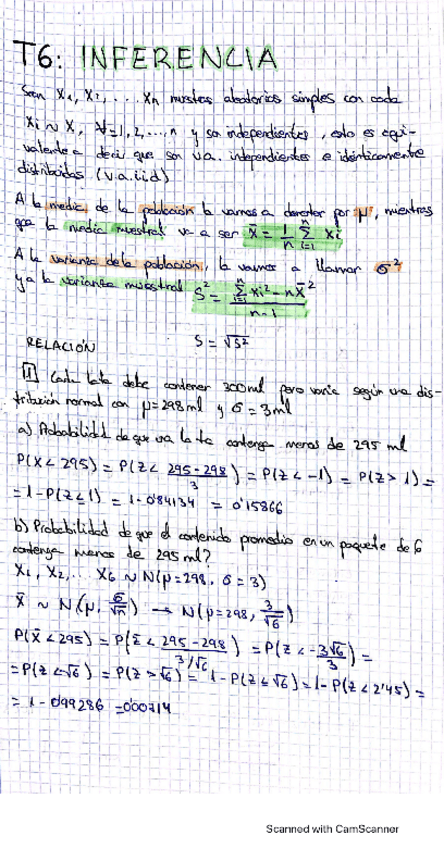 T6: INFERENCIA
Sean X₁, X₂, ... Xn muestras aleatorias simples con cada
Xi ~ X, ∀=1,2,...,n y son independientes, esto es equi-
valente a decir que son v.a. independientes e idénticamente
distribuidas (v.a.iid)
A la media de la población la vamos a denotar por μ, mientras
que la media muestral va a ser x̄ = 1/n Σ(i=1, n) xi
A la varianza de la población, la vamos a llamar σ²
y a la varianza muestral S² = (Σ(i=1, n) xi² - n x̄²)/(n-1)
S = √S²
RELACIÓN
1 Cada lata debe contener 300ml pero varía según una dis-
tribución normal con μ=298ml y σ=3ml
a) Probabilidad de que una lata contenga menos de 295 ml
P(X < 295) = P(Z < (295-298)/3) = P(Z < -1) = P(Z > 1) =
= 1 - P(Z ≤ 1) = 1 - 0'84134 = 0'15866
b) Probabilidad de que el contenido promedio en un paquete de 6
contenga menos de 295 ml?
X₁, X₂, ... X₆ ~ N(μ=298, σ=3)
x̄ ~ N(μ, σ/√n) → N(μ=298, 3/√6)
P(x̄ < 295) = P(z < (295-298)/(3/√6)) = P(z < -3√6/3) =
= P(z < -√6) = P(z > √6) = 1 - P(z ≤ √6) = 1 - P(z < 2'45) =
= 1 - 0'99286 = 0'00714
Scanned with CamScanner